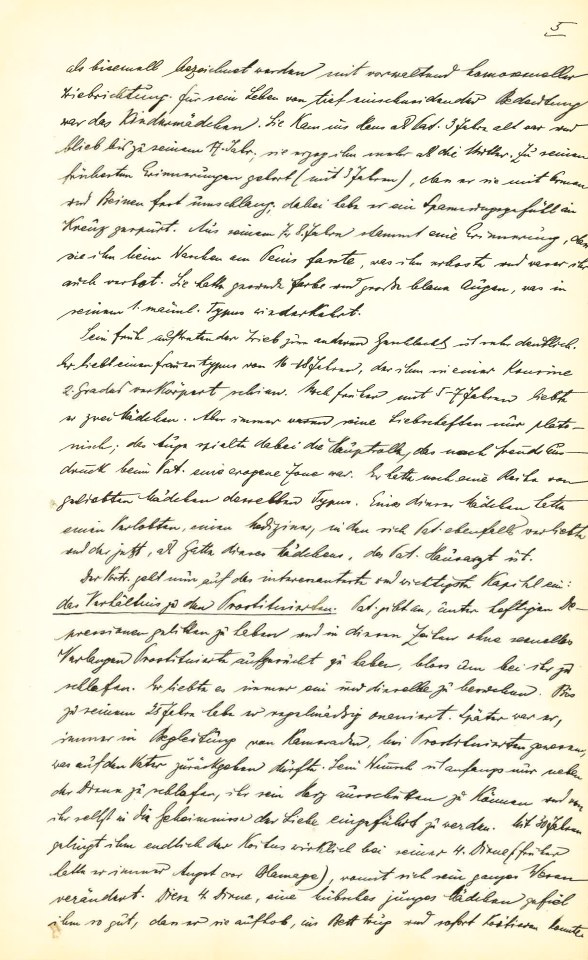 5
als bisexuell bezeichnet werden mit vorwaltend homosexueller
Triebrichtung. Für sein Leben von tief einschneidender Bedeutung
war das Kindermädchen. Sie kam ins Haus als Pat. 3 Jahre alt war und
blieb bis zu seinem 17. Jahr, sie erzog ihn mehr als die Mutter. Zu seinen
frühesten Erinnerungen gehört (mit 3 Jahren), dass er sie mit Armen
und Beinen fest umschlang, dabei habe er ein Spannungsgefühl im
Kreuz gespürt. Aus seinem 7. 8. Jahren stammt eine Erinnerung, dass
sie ihn beim Waschen am Penis fasste, was ihn erboste und was er ihr
auch verbot. Sie hatte gesunde Farbe und große blaue Augen, was in
seinem 1. männl. Typus wiederkehrt.
Sein früh auftretender Trieb zum anderen Geschlecht ist sehr deutlich.
Er liebt einen Frauentypus von 16-18 Jahren, der ihm in einer Kousine
2. Grades verkörpert schien. Noch früher mit 5-7 Jahren liebte
er zwei Mädchen. Aber immer waren seine Liebschaften nur plato-
nisch; das Auge spielte dabei die Hauptrolle, das nach Freuds Aus-
druck beim Pat. eine erogene Zone war. Er hatte noch eine Reihe von
geliebten Mädchen desselben Typus. Eines dieser Mädchen hatte
einen Verlobten, einen Mediziner, in den sich Pat. ebenfalls verliebte
und der jetzt, als Gatte dieses Mädchens, des Pat. Hausarzt ist.
Der Vortr. geht nun auf das interessanteste und wichtigste Kapitel ein:
das Verhältnis zu den Prostituierten. Pat. gibt an, unter heftigen De-
pressionen gelitten zu haben und in diesen Zeiten ohne sexuelles
Verlangen Prostituierte aufgesucht zu haben, bloss um bei ihr zu
schlafen. Er liebte es immer ein und dieselbe zu besuchen. Bis
zu seinem 25. Jahre habe er regelmässig onaniert. Später war er,
immer in Begleitung von Kameraden, bei Prostituierten gewesen,
was auf den Vater zurückgehen dürfte. Sein Wunsch ist anfangs nur neben
der Dirne zu schlafen, ihr sein Herz ausschütten zu können und von
ihr selbst in die Geheimnisse der Liebe eingeführt zu werden. Mit 30 Jahren
gelingt ihm endlich der Koitus wirklich bei seiner 4. Dirne (früher
hatte er immer Angst vor Blamage), womit sich sein ganzes Wesen
verändert. Diese 4. Dirne, eine hübsches junges Mädchen gefiel
ihm so gut, dass er sie aufhob, ins Bett trug und sofort koitieren konnte.